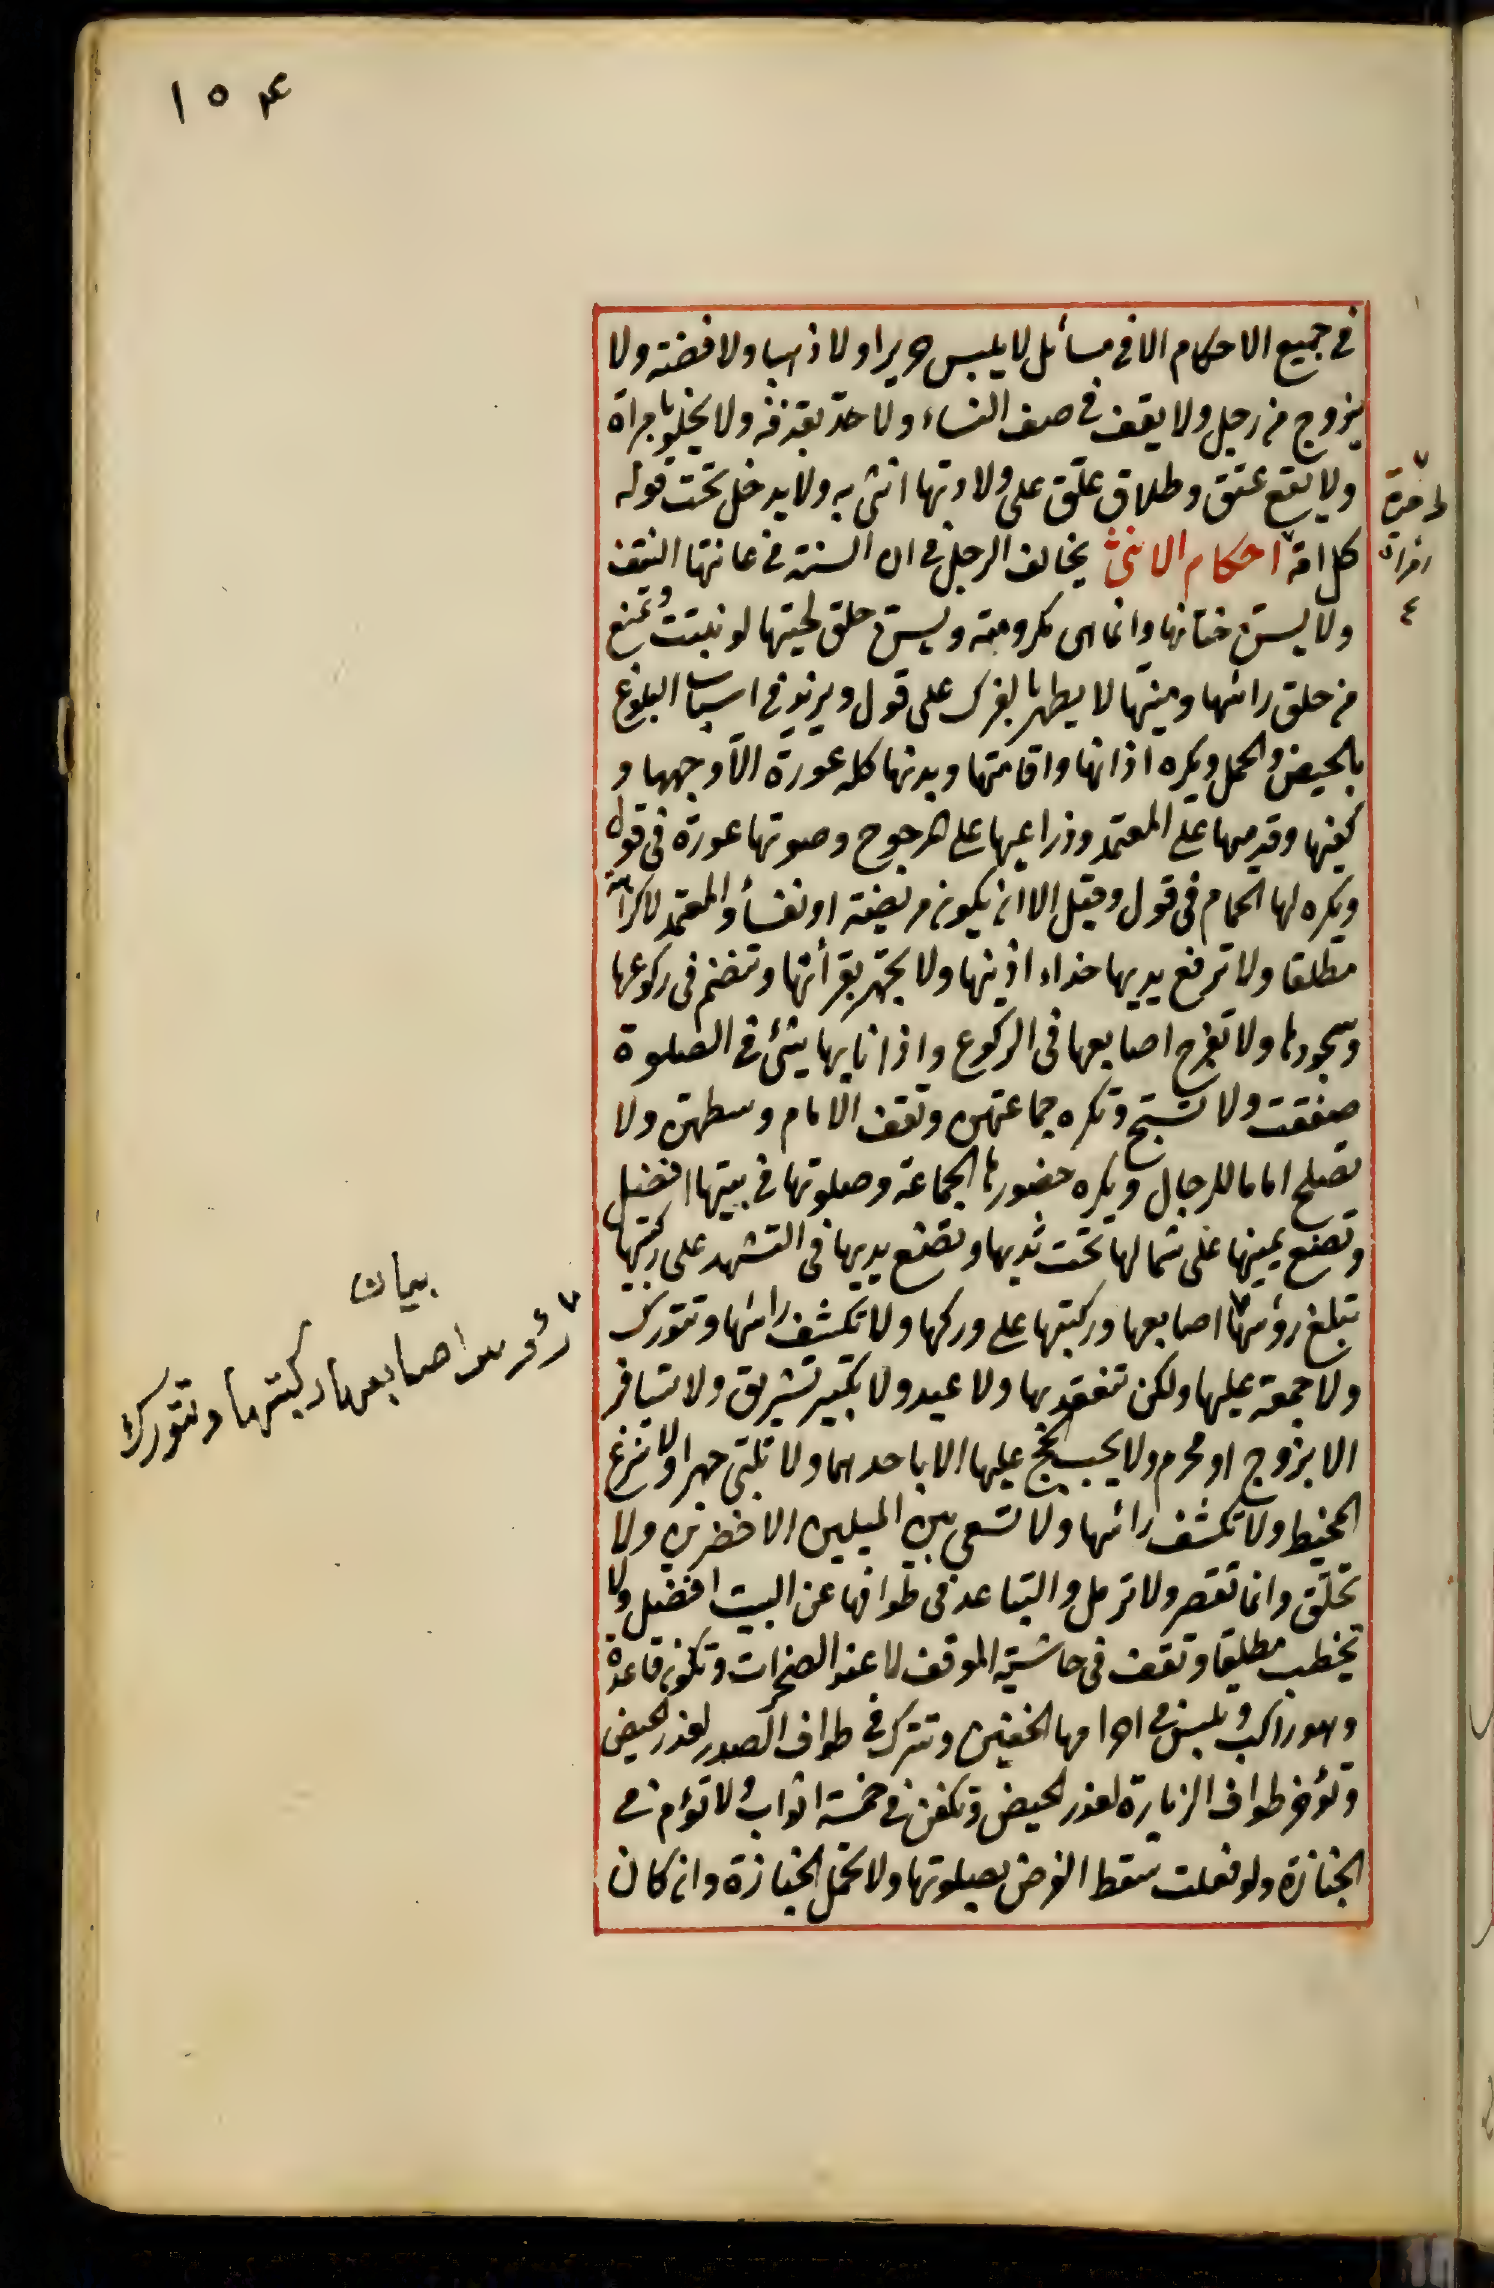 ١٥٤
في جميع الاحكام الا في مسائل لا يلبس حريرا ولا ذهبا ولا فضة ولا
يزوج من رجل ولا يقف في صف النساء ولا حد بقذفه ولا يخلو بامرأة
ولا يقع عتق وطلاق علق على ولادتها انثى به ولا يدخل تحت قوله
كل امة احكام الانثى يخالف الرجل في ان السنة في عانتها النتف
ولا يسن ختانها وانما هى مكرومة ويسن حلق لحيتها لو نبتت وتمنع
من حلق رأسها ومنيها لا يطهر بالفرك على قول ويزيد في اسباب البلوغ
بالحيض والحمل ويكره اذانها واقامتها وبدنها كله عورة الا وجهها و
كفيها وقدميها على المعتمد وذراعيها على المرجوح وصوتها عورة في قول
ويكره لها الحمام في قول وقيل الا ان يكون مريضة او نفسأ والمعتمد لا كراهة
مطلقا ولا ترفع يديها حذاء اذينها ولا يجهر بقرأتها وتنضم في ركوعها
وسجودها ولا تفرج اصابعها في الركوع واذا نابها شئ في الصلوة
صفقت ولا تسبح وتكره جماعتهن وتقف الامام وسطهن ولا
تصلح اماما للرجال ويكره حضورها الجماعة وصلوتها في بيتها افضل
وتضع يمينها على شمالها تحت ثديها وتضع يديها في التشهد على ركبتيها
تبلغ رؤسها اصابعها وركبتها على وركها ولا تكشف رأسها وتتورك
ولا جمعة عليها ولكن تنعقد بها ولا عيد ولا تكبير تشريق ولا تسافر
الا بزوج او محرم ولا يجب الحج عليها الا باحدهما ولا تلبى جهرا ولا تنزع
المخيط ولا تكشف رأسها ولا تسعى بين الميلين الاخضرين ولا
تحلق وانما تقصر ولا ترمل والتباعد في طوافها عن البيت افضل ولا
تخطب مطلقا وتقف في حاشية الموقف لا عند الصخرات وتكون قاعدة
وهو راكب وتلبس في احرامها الخفين وتترك في طواف الصدر لعذر الحيض
وتؤخر طواف الزيارة لعذر الحيض وتكفن في خمسة اثواب ولا تؤم في
الجنازة ولو فعلت سقط الفرض بصلوتها ولا تحمل الجنازة وان كان
امرأة
٤
بيان
رؤس اصابعها ركبتها وتتورك